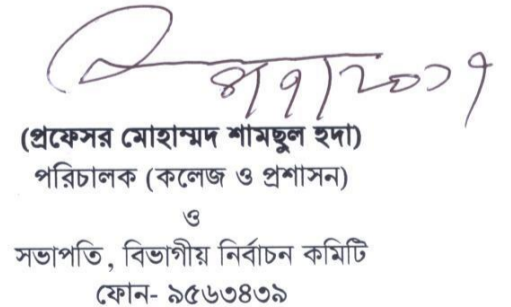 ৪/৭/২০১৭
(প্রফেসর মোহাম্মদ শামছুল হুদা)
পরিচালক (কলেজ ও প্রশাসন)
ও
সভাপতি, বিভাগীয় নির্বাচন কমিটি
ফোন- ৯৫৬৩৪৩৯